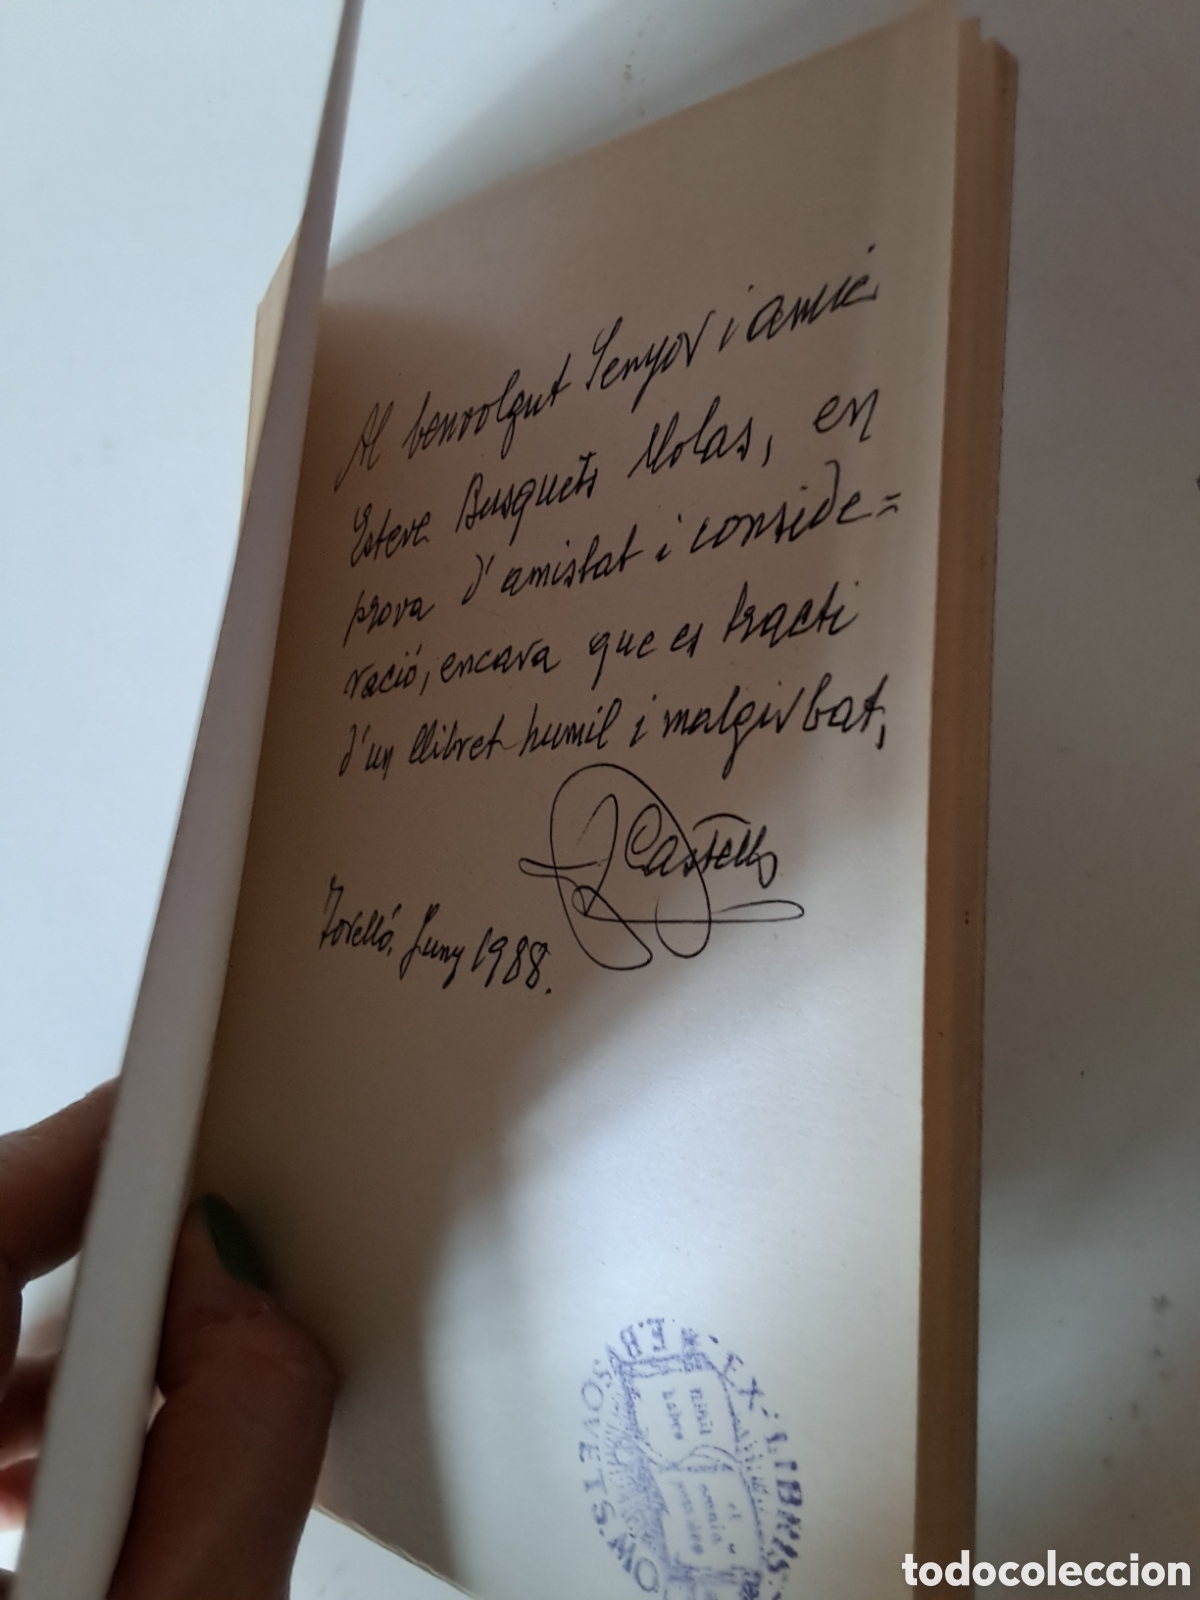 Al benvolgut Senyor i amic
Esteve Busquets Molas, en
prova d'amistat i conside=
ració, encara que es tracti
d'un llibret humil i malgirbat,
Castells
Torelló, Juny 1988.
EX LIBRIS
nihil
habeo
et
omnia
possideo
todocoleccion